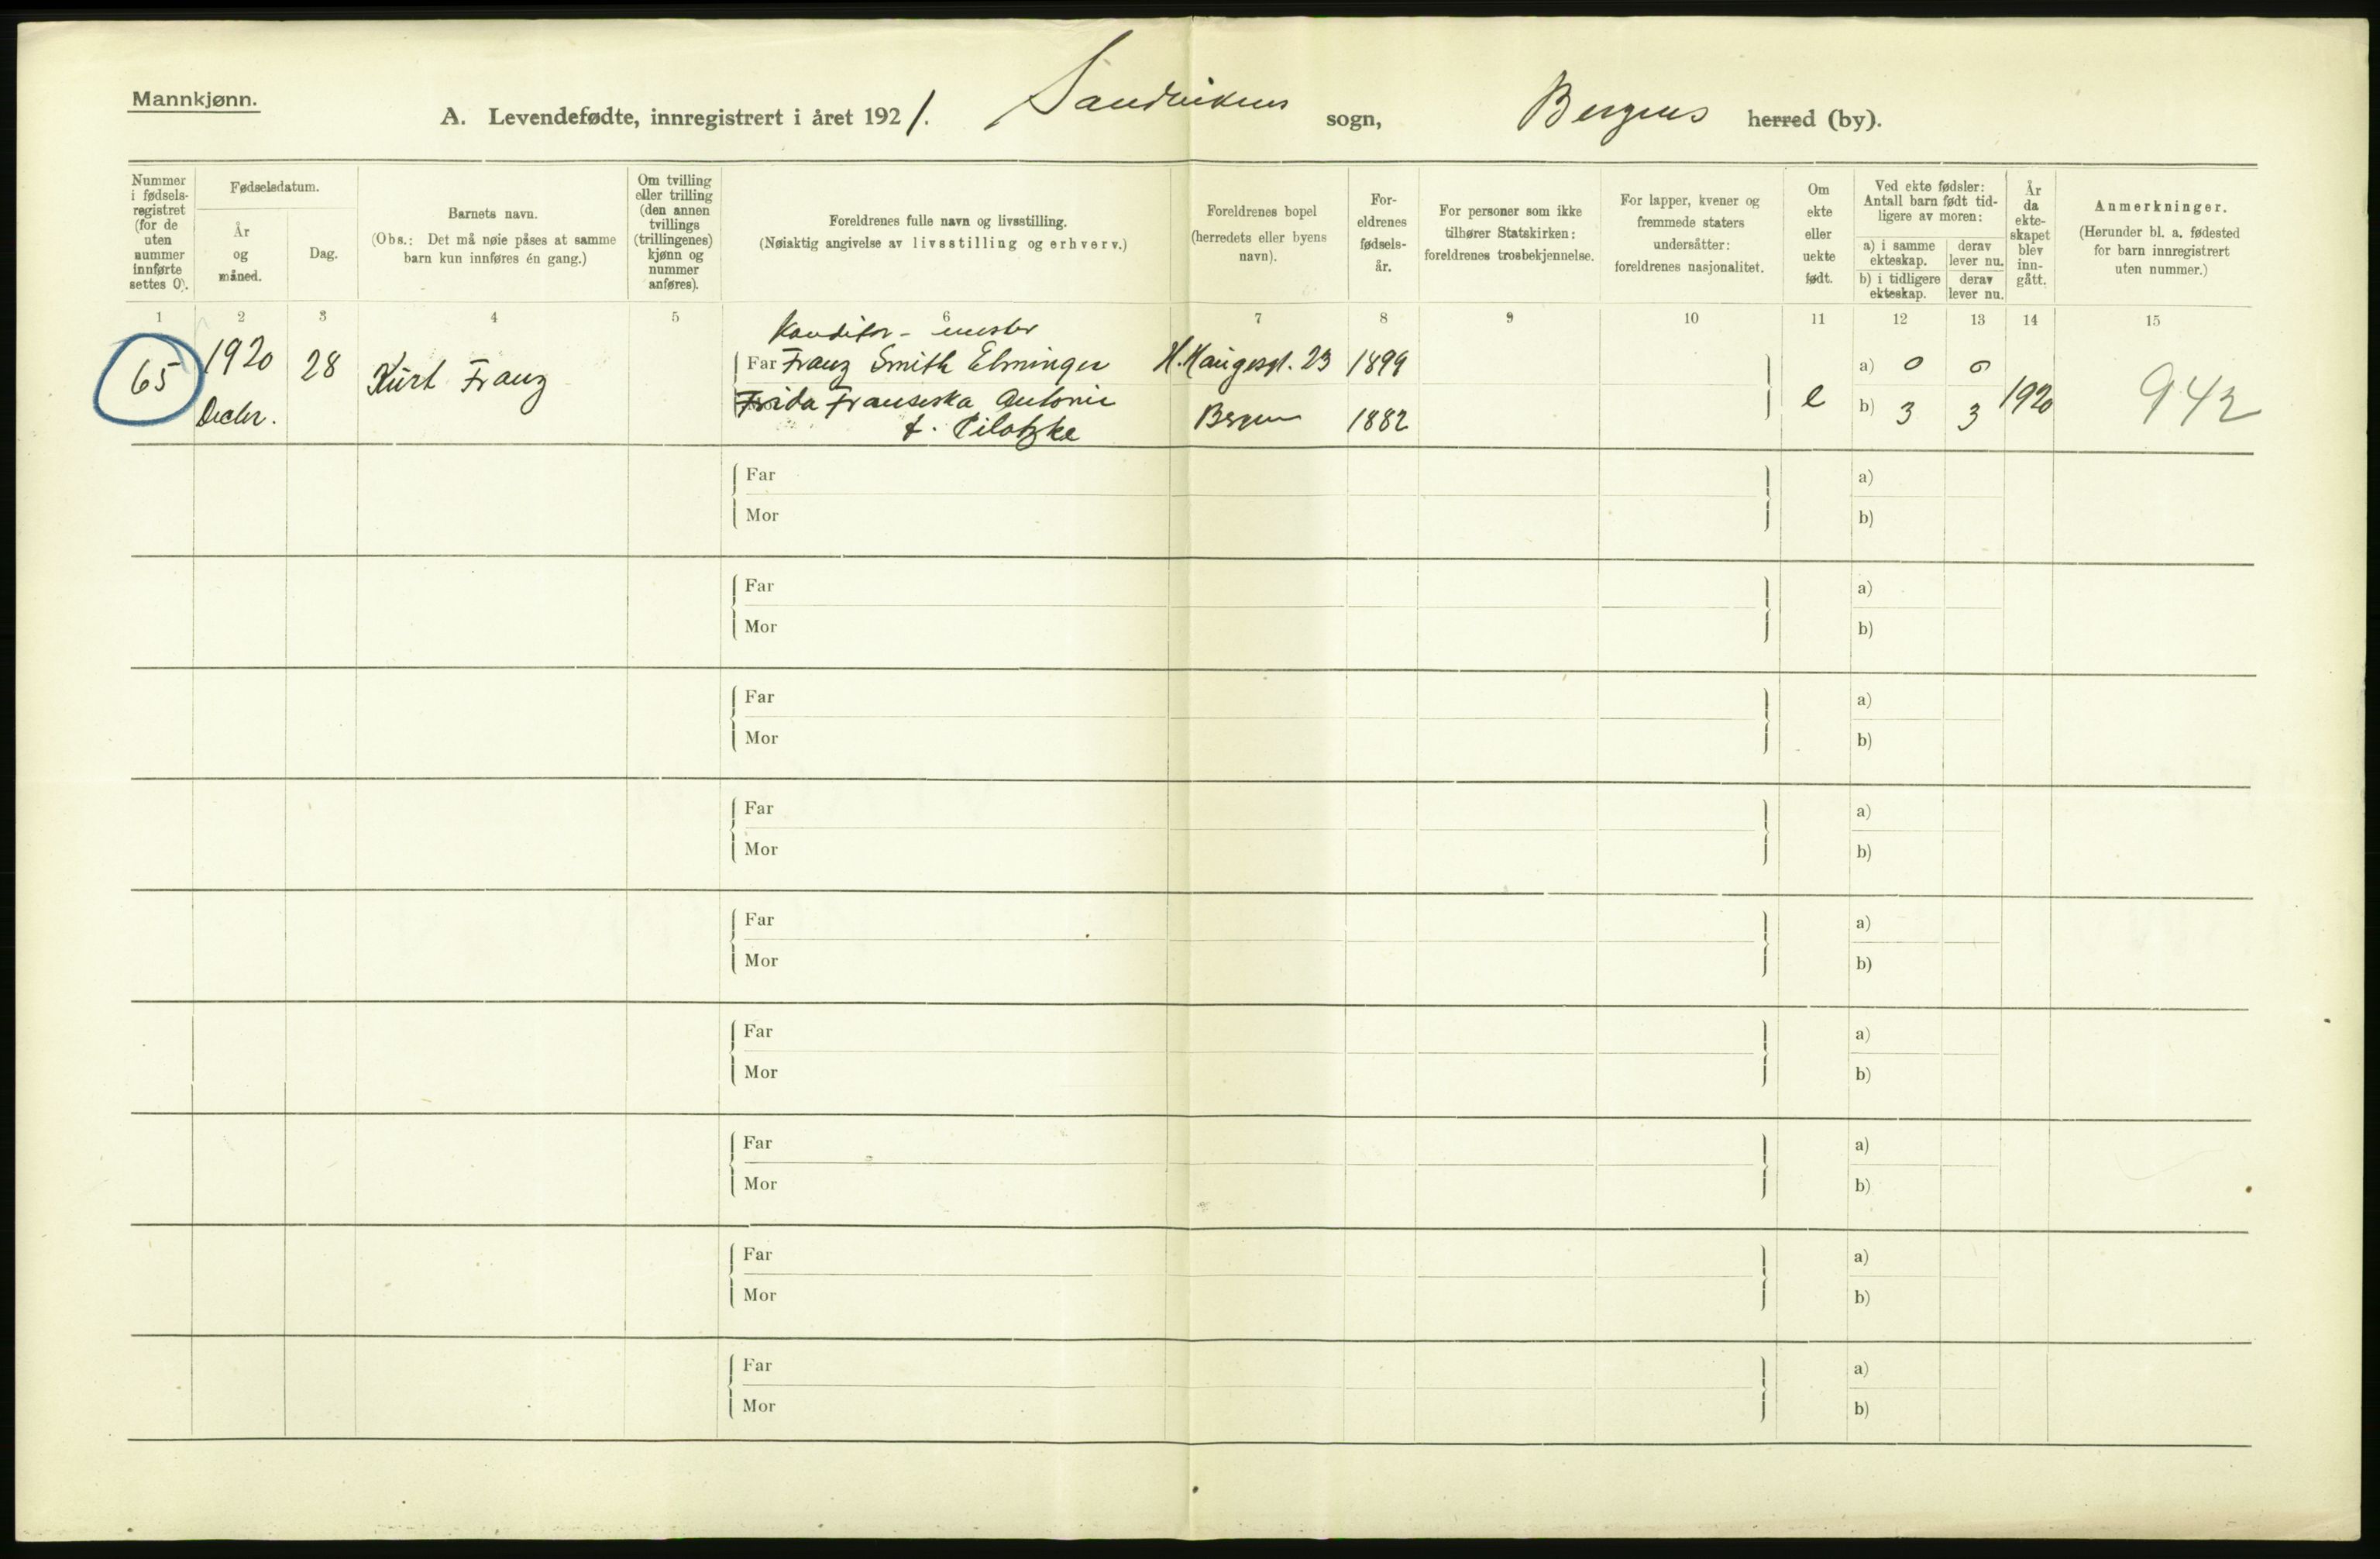 Mannkjønn.
A. Levendefødte, innregistrert i året 1921. Sandvikens sogn, Bergens herred (by).
Nummer i fødsels-registret (for de uten nummer innførte settes 0).
Fødselsdatum.
År og måned.
Dag.
Barnets navn.
(Obs.: Det må nøie påses at samme barn kun innføres én gang.)
Om tvilling eller trilling (den annen tvillings (trillingenes) kjønn og nummer anføres).
Foreldrenes fulle navn og livsstilling.
(Nøiaktig angivelse av livsstilling og erhverv.)
Foreldrenes bopel (herredets eller byens navn).
For-eldrenes fødsels-år.
For personer som ikke tilhører Statskirken: foreldrenes trosbekjennelse.
For lapper, kvener og fremmede staters undersåtter: foreldrenes nasjonalitet.
Om ekte eller uekte født.
Ved ekte fødsler: Antall barn født tid-ligere av moren:
a) i samme ekteskap.
derav lever nu.
b) i tidligere ekteskap.
derav lever nu.
År da ekte-skapet blev inn-gått.
Anmerkninger.
(Herunder bl. a. fødested for barn innregistrert uten nummer.)
1 2 3 4 5 6 7 8 9 10 11 12 13 14 15
Konditor-mester
65 1920 28 Kurt Franz Far Franz Smith Elminger H. Haugesgt. 23 1899 e a) 0 0 1920 942
Decbr. Frida Franseska Antonie Bergen 1882 b) 3 3
f. Pilatzke
Far a)
Mor b)
Far a)
Mor b)
Far a)
Mor b)
Far a)
Mor b)
Far a)
Mor b)
Far a)
Mor b)
Far a)
Mor b)
Far a)
Mor b)
Far a)
Mor b)